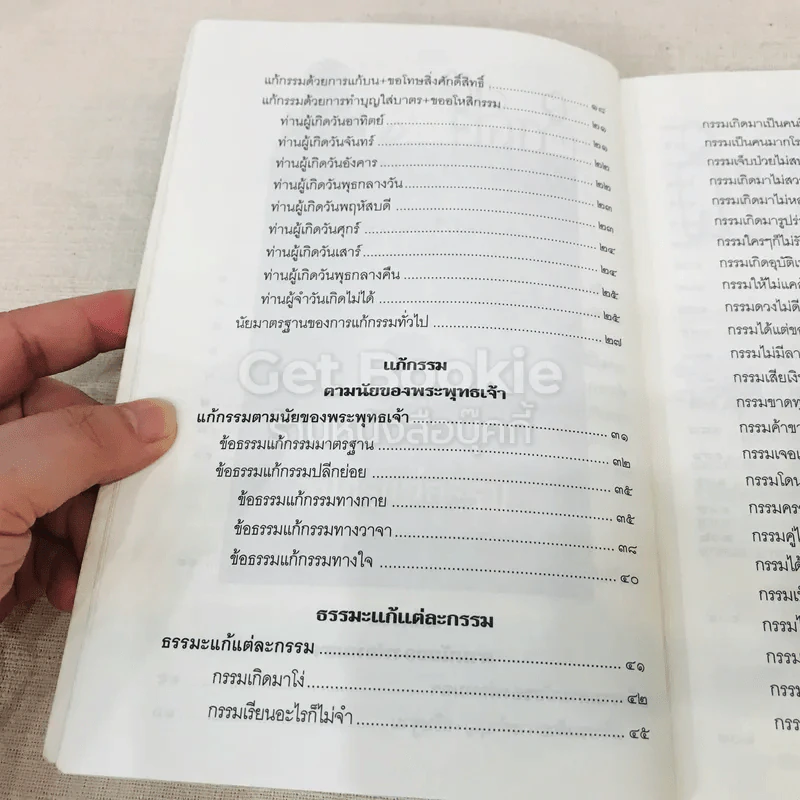 แก้กรรมด้วยการแก้บน+ขอโทษสิ่งศักดิ์สิทธิ์ ........ ๑๘
แก้กรรมด้วยการทำบุญใส่บาตร+ขออโหสิกรรม ........ ๒๑
ท่านผู้เกิดวันอาทิตย์ ........ ๒๑
ท่านผู้เกิดวันจันทร์ ........ ๒๑
ท่านผู้เกิดวันอังคาร ........ ๒๒
ท่านผู้เกิดวันพุธกลางวัน ........ ๒๒
ท่านผู้เกิดวันพฤหัสบดี ........ ๒๓
ท่านผู้เกิดวันศุกร์ ........ ๒๓
ท่านผู้เกิดวันเสาร์ ........ ๒๔
ท่านผู้เกิดวันพุธกลางคืน ........ ๒๔
ท่านผู้จำวันเกิดไม่ได้ ........ ๒๕
นัยมาตรฐานของการแก้กรรมทั่วไป ........ ๒๗
แก้กรรม
ตามนัยของพระพุทธเจ้า
แก้กรรมตามนัยของพระพุทธเจ้า ........ ๓๑
ข้อธรรมแก้กรรมมาตรฐาน ........ ๓๒
ข้อธรรมแก้กรรมปลีกย่อย ........ ๓๕
ข้อธรรมแก้กรรมทางกาย ........ ๓๕
ข้อธรรมแก้กรรมทางวาจา ........ ๓๘
ข้อธรรมแก้กรรมทางใจ ........ ๔๐
ธรรมะแก้แต่ละกรรม
ธรรมะแก้แต่ละกรรม ........ ๔๑
กรรมเกิดมาโง่ ........ ๔๒
กรรมเรียนอะไรก็ไม่จำ ........ ๔๕
Get Bookie
ร้านหนังสือบุ๊คกี้
กรรมเกิดมาเป็นคน
กรรมเป็นคนมากโร
กรรมเจ็บป่วยไม่
กรรมเกิดมาไม่สว
กรรมเกิดมาไม่
กรรมเกิดมารูปร่า
กรรมใครๆก็ไม่
กรรมเกิดอุบัติเ
กรรมให้ไม่แค
กรรมดวงไม่ดี
กรรมได้แต่ข
กรรมไม่มีลา
กรรมเสียเงิน
กรรมขาดทุ
กรรมค้าขา
กรรมเจอเ
กรรมโดน
กรรมคร
กรรมคู่ไ
กรรมได้
กรรมเป็
กรรมไ
กรรม
กรรม
กรร